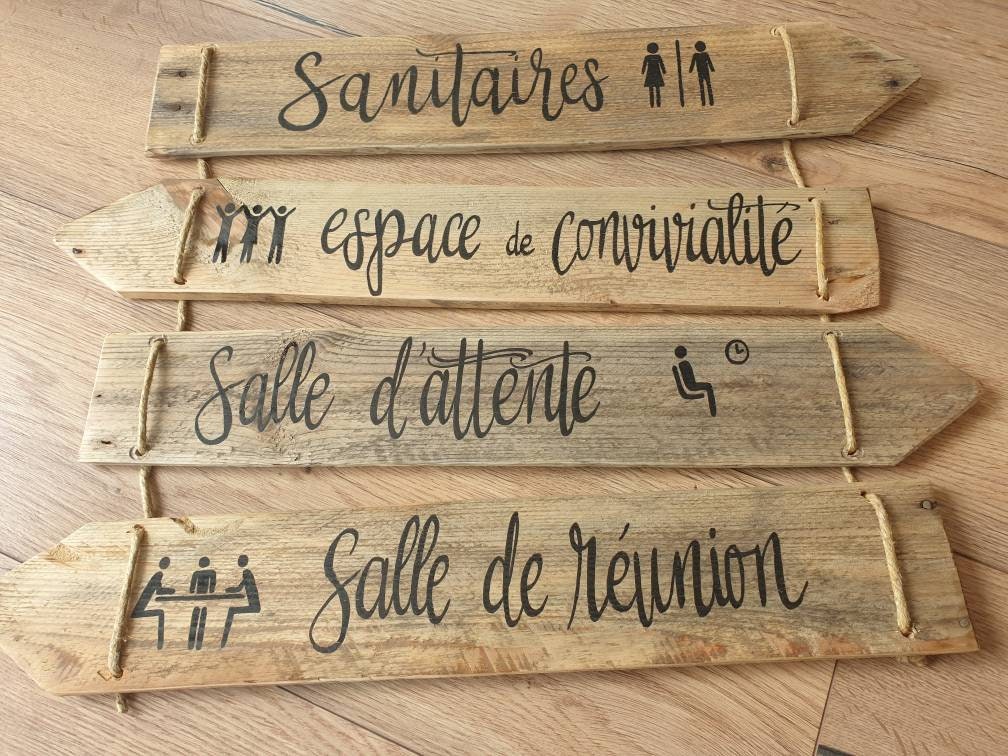 Sanitaires
espace de convivialité
Salle d'attente
Salle de réunion